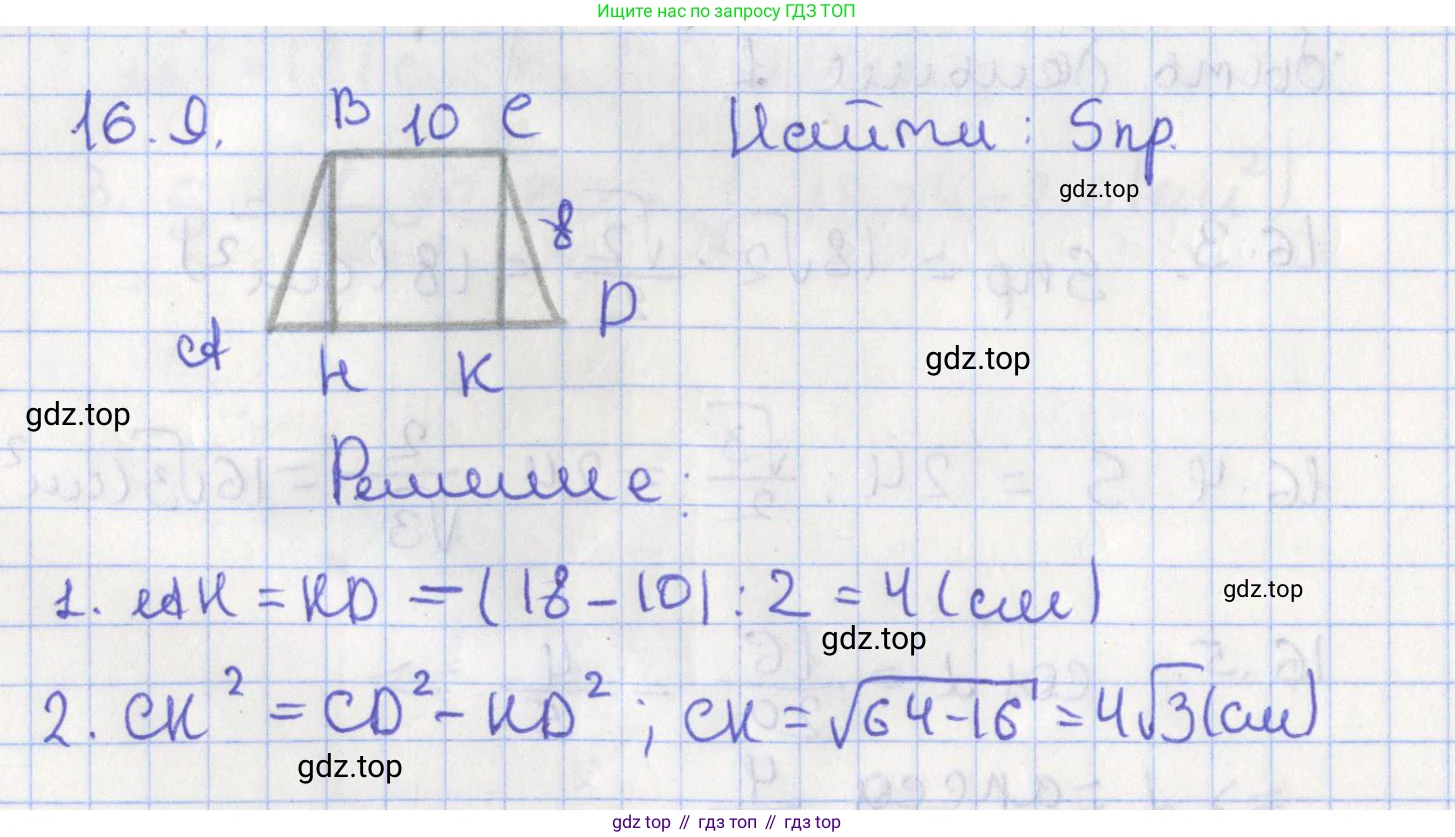 Ищите нас по запросу ГДЗ ТОП
16.9. B 10 C Найти: Sпр.
gdz.top
8
A H K D
gdz.top
gdz.top
Решение:
1. AH = KD = (18 - 10) : 2 = 4 (см)
gdz.top
gdz.top
2. CK² = CD² - KD² ; CK = √64-16 = 4√3 (см)
gdz.top
gdz top // гдз топ // gdz.top